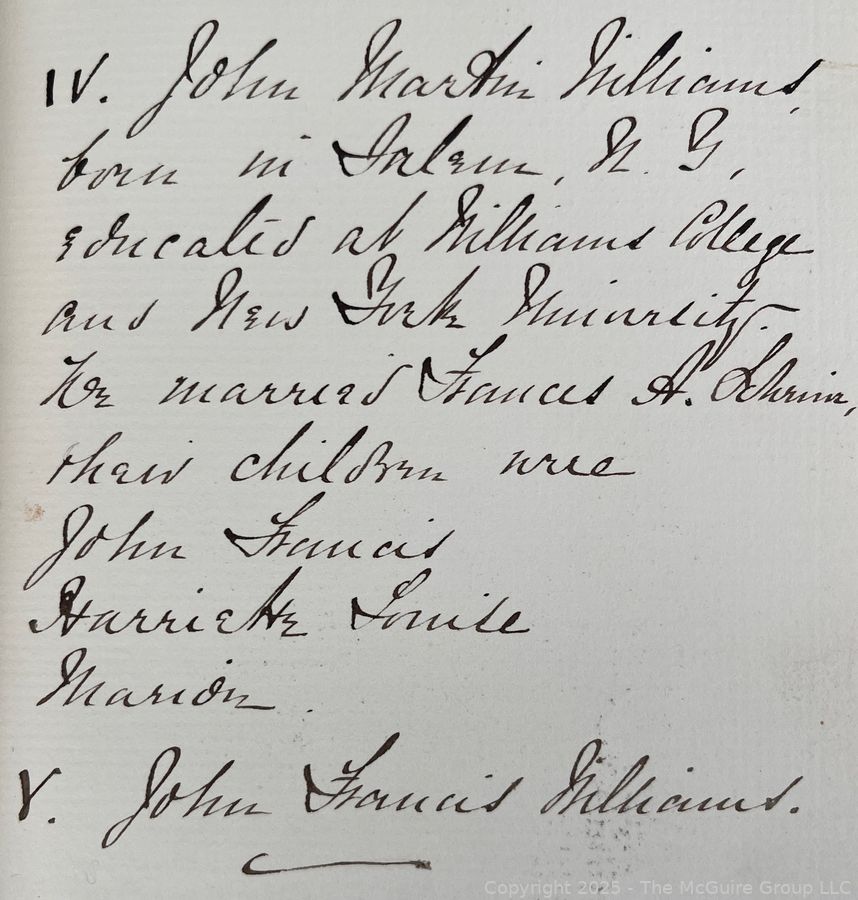 IV. John Martin Williams,
born in Salem, N. Y,
educated at Williams College
and New York University.
He married Frances A. Schriver,
their children were
John Francis
Harriette Louise
Marion.
V. John Francis Williams.
Copyright 2025 - The McGuire Group LLC